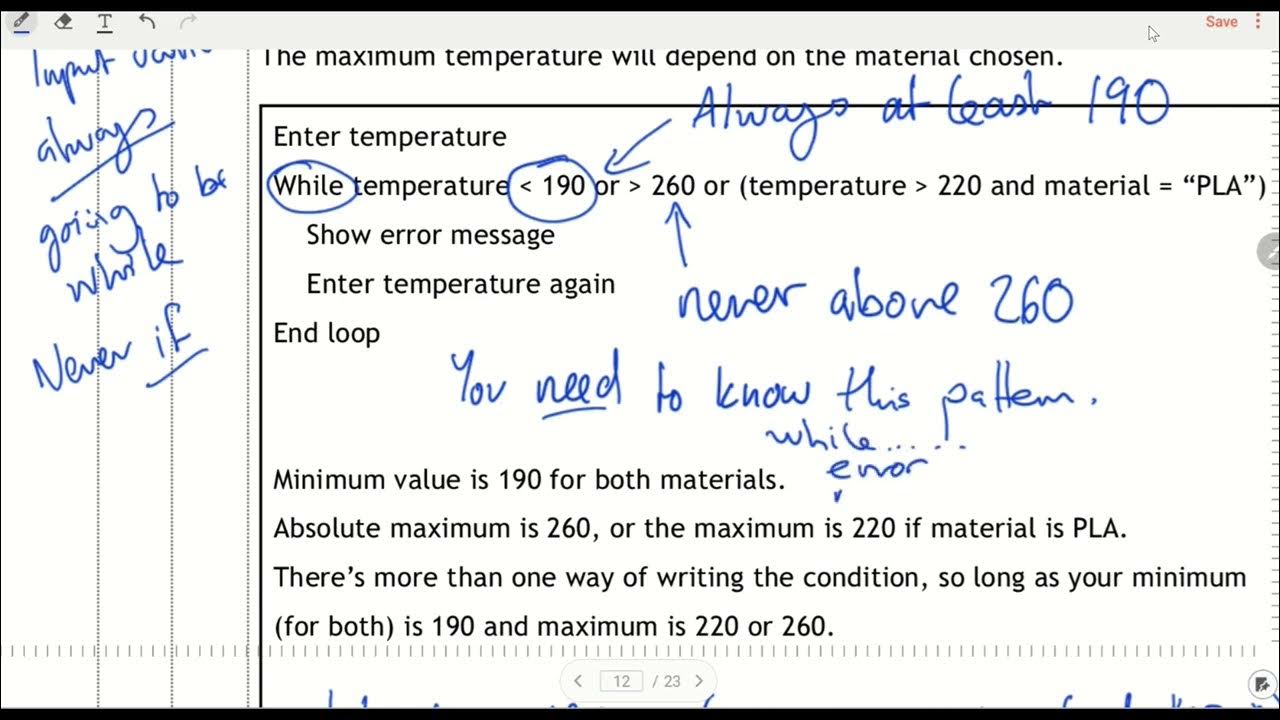 T
Save
The maximum temperature will depend on the material chosen.
Input
always
going to be
while
Never if
Always at least 190
Enter temperature
While temperature < 190 or > 260 or (temperature > 220 and material = “PLA”)
Show error message
Enter temperature again
never above 260
End loop
You need to know this pattern.
while......
error
Minimum value is 190 for both materials.
Absolute maximum is 260, or the maximum is 220 if material is PLA.
There’s more than one way of writing the condition, so long as your minimum
(for both) is 190 and maximum is 220 or 260.
< 12 / 23 >